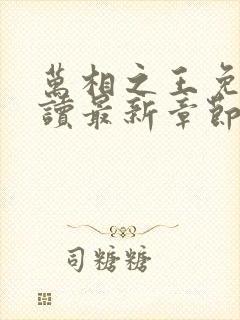 萬相之王免
讀最新章節
司糖糖